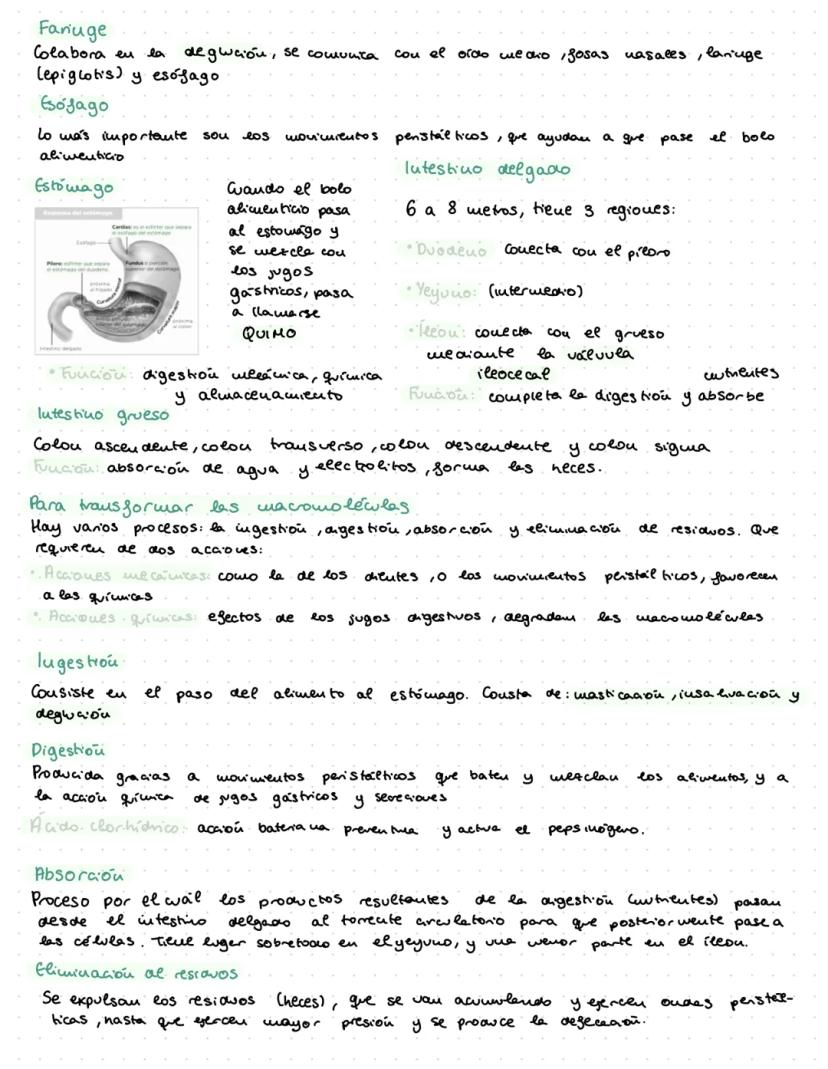 Faringe
Colabora en la deglución, se comunica con el oído medio, fosas nasales, laringe
(epiglotis) y esófago
Esófago
Lo más importante son los movimientos peristálticos, que ayudan a que pase el bolo
alimenticio
Estómago
Esquema del estómago
Cardias: es el esfínter que separa
el esófago del estómago
Esófago
Píloro: esfínter que separa
el estómago del duodeno
Fundus o porción
superior del estómago
próxima
al hígado
Curvatura menor
Curvatura mayor
próxima
al colon
Intestino delgado
Cuando el bolo
alimenticio pasa
al estómago y
se mezcla con
los jugos
gástricos, pasa
a llamarse
QUIMO
• Función: digestión mecánica, química
y almacenamiento
Intestino delgado
6 a 8 metros, tiene 3 regiones:
• Duodeno conecta con el píloro
• Yeyuno: (intermedio)
• Íleon: conecta con el grueso
mediante la válvula
ileocecal
nutrientes
Función: completa la digestión y absorbe
Intestino grueso
Colon ascendente, colon transverso, colon descendente y colon sigma
Función: absorción de agua y electrolitos, forma las heces.
Para transformar las macromoléculas
Hay varios procesos: la ingestión, digestión, absorción y eliminación de residuos. Que
requieren de dos acciones:
• Acciones mecánicas: como la de los dientes, o los movimientos peristálticos, favorecen
a las químicas
• Acciones químicas: efectos de los jugos digestivos, degradan las macromoléculas
Ingestión
Consiste en el paso del alimento al estómago. Consta de: masticación, insalivación y
deglución
Digestión
Producida gracias a movimientos peristálticos que baten y mezclan los alimentos, y a
la acción química de jugos gástricos y secreciones
Ácido clorhídrico: acción bateriana preventiva y activa el pepsinógeno.
Absorción
Proceso por el cuál los productos resultantes de la digestión (nutrientes) pasan
desde el intestino delgado al torrente circulatorio para que posteriormente pase a
las células. Tiene lugar sobretodo en el yeyuno, y una menor parte en el íleon.
Eliminación de residuos
Se expulsan los residuos (heces), que se van acumulando y ejercen ondas peristál-
ticas, hasta que ejercen mayor presión y se produce la defecación.